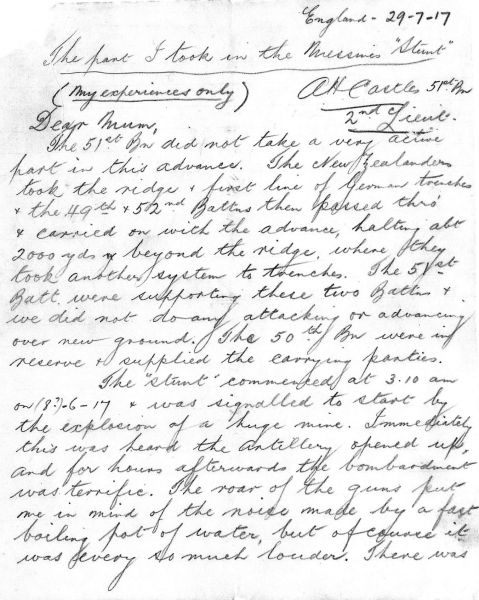 England - 29-7-17
The part I took in the Messines "Stunt"
(My experiences only)
AH Castles 51st Bn
2nd Lieut.
Dear Mum,
The 51st Bn did not take a very active
part in this advance. The New Zealanders
took the ridge & first line of German trenches
& the 49th & 52nd Battns then passed thro'
& carried on with the advance, halting abt
2000 yds beyond the ridge, where they
took another system to trenches. The 51st
Batt. were supporting these two Battns &
we did not do any attacking or advancing
over new ground. The 50th Bn were in
reserve & supplied the carrying parties.
The "stunt" commenced at 3.10 am
on (8?)-6-17 & was signalled to start by
the explosion of a huge mine. Immediately
this was heard the Artillery opened up,
and for hours afterwards the bombardment
was terrific. The roar of the guns put
me in mind of the noise made by a fast
boiling pot of water, but of course it
was every so much louder. There was